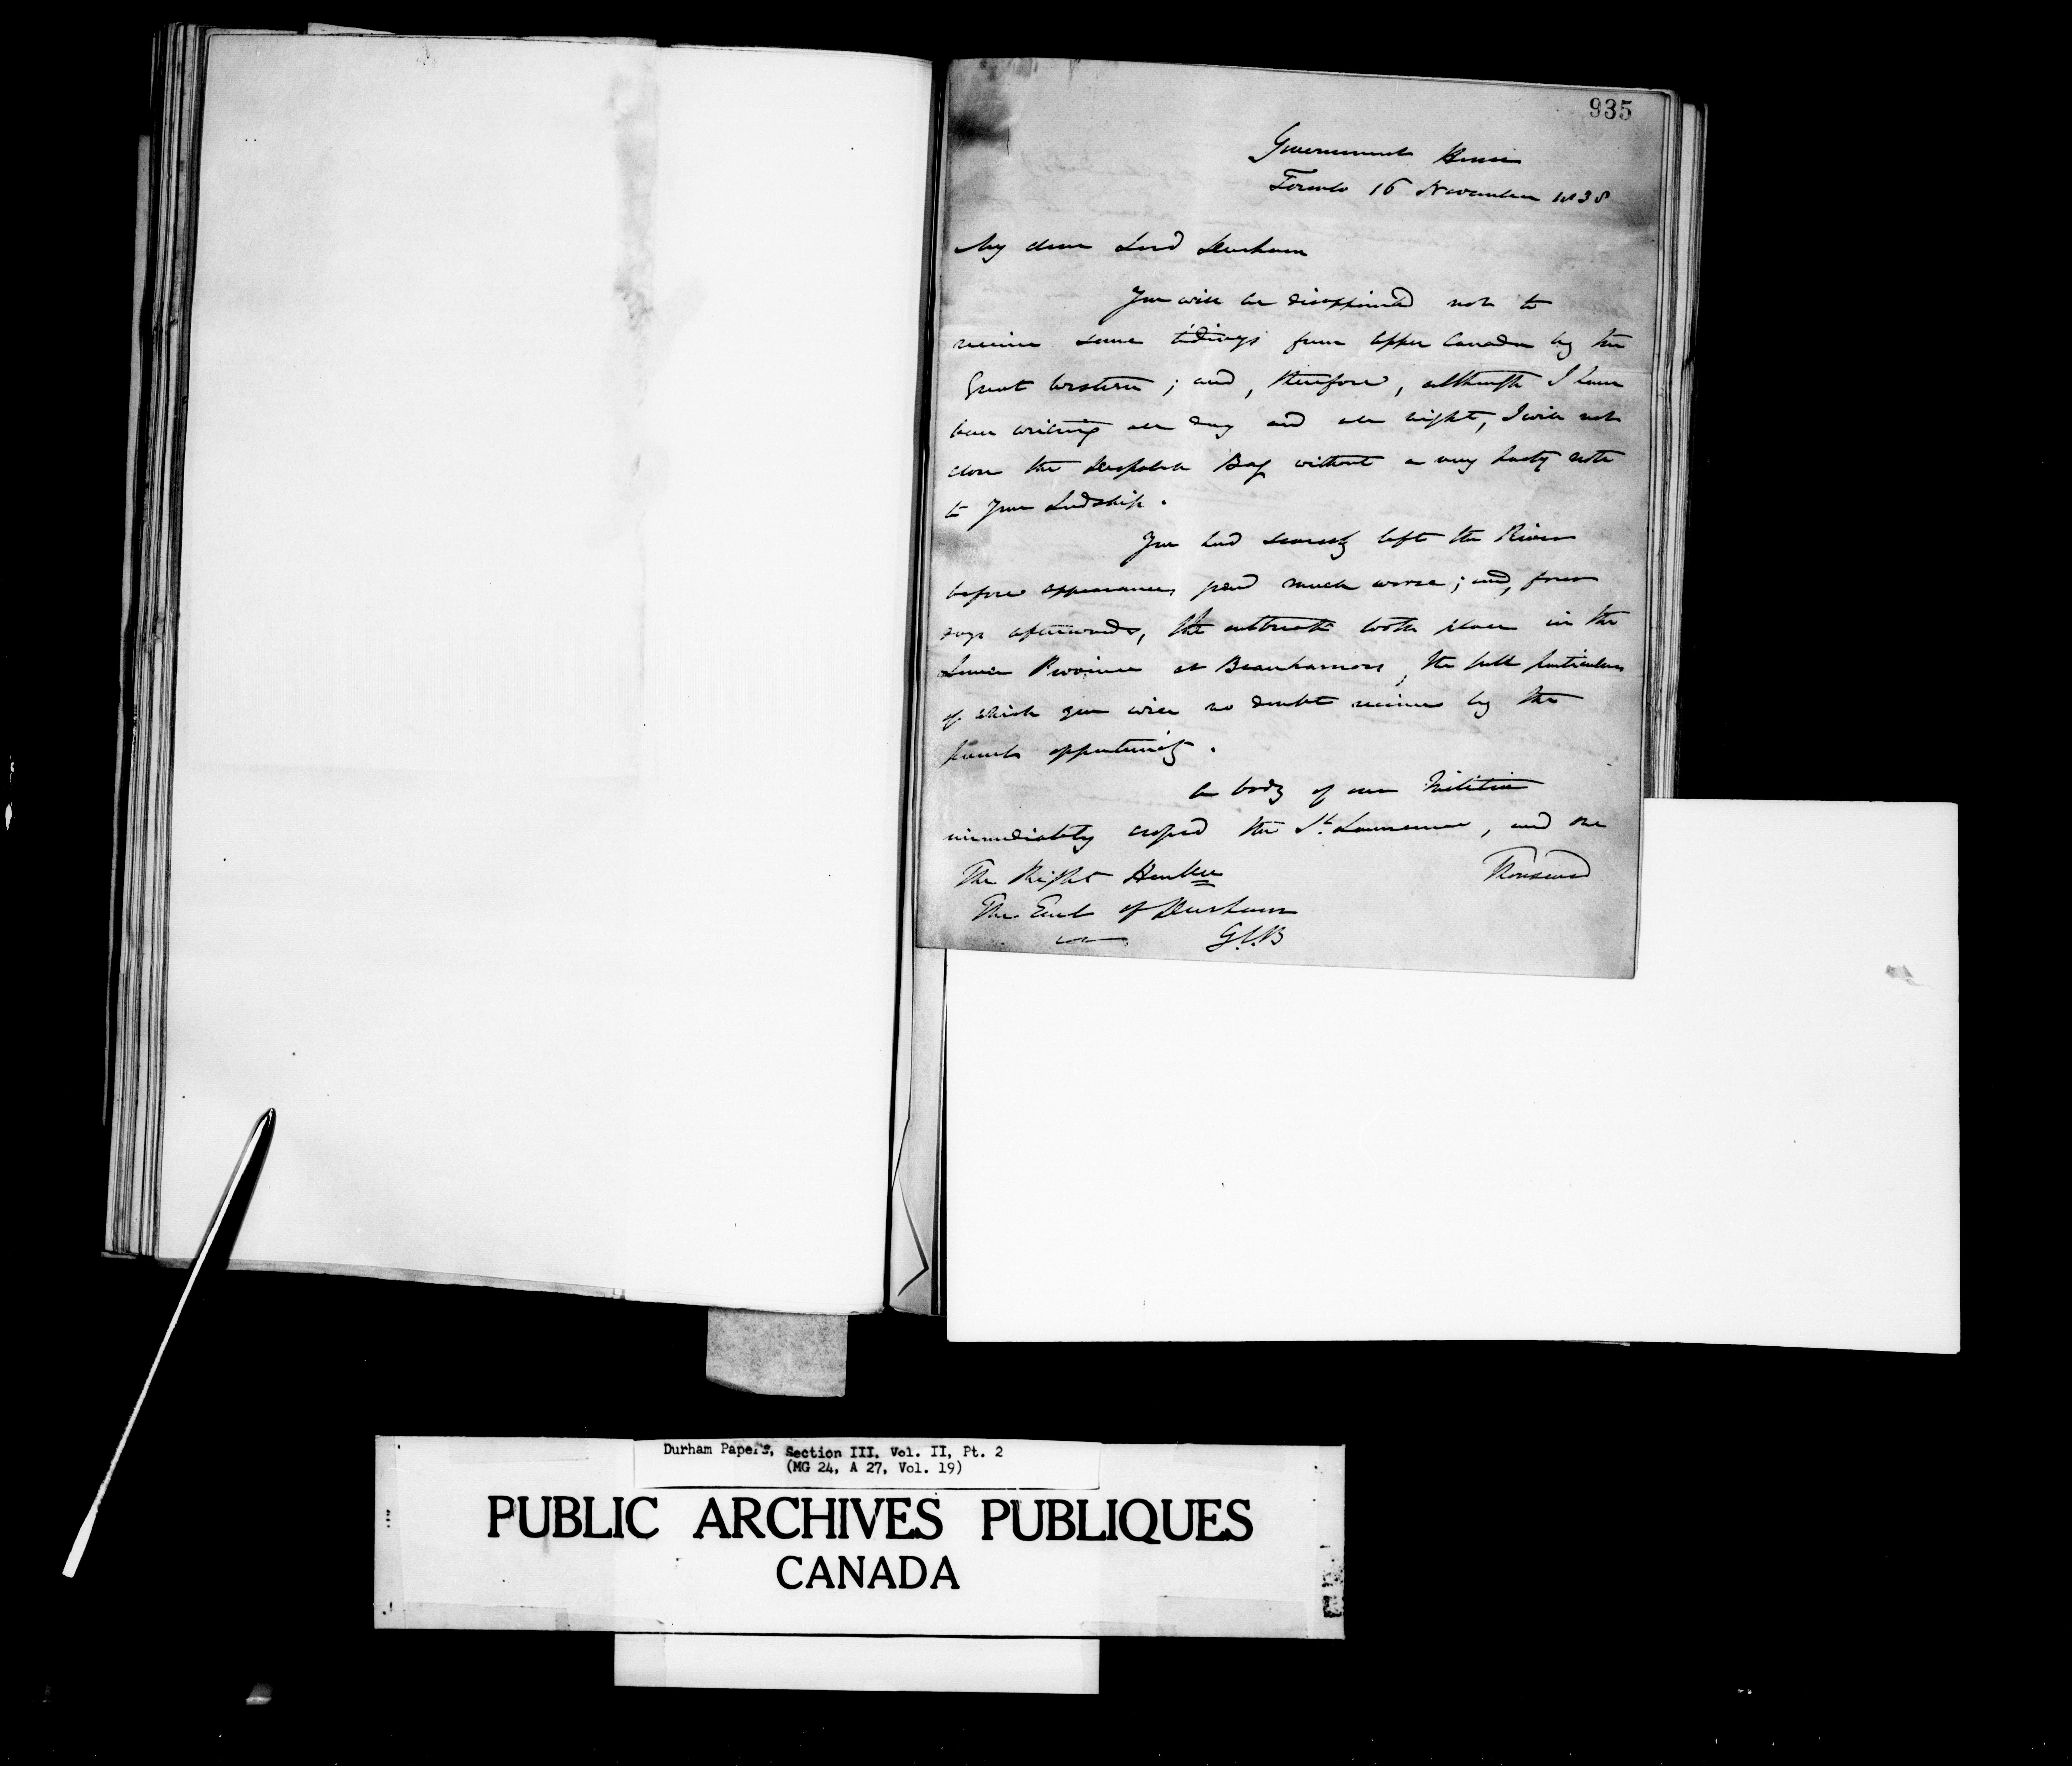 935
Government House
Toronto 16 November 1838
My dear Lord Durham
You will be disappointed not to
receive some tidings from Upper Canada by the
Great Western ; and, therefore, although I have
been writing all day and all night, I will not
close the Despatch Bag without a very hasty note
to Your Lordship.
You had scarcely left the River
before appearances grew much worse ; and, four
days afterwards, the outbreak took place in the
Lower Province at Beauharnois, the full particulars
of which you will no doubt receive by the
present opportunity.
A body of our Militia
immediately crossed the St. Lawrence, and one
Thousand
The Right Honble
The Earl of Durham
G.C.B
Durham Papers, Section III, Vol. II, Pt. 2
(MG 24, A 27, Vol. 19)
PUBLIC ARCHIVES PUBLIQUES
CANADA